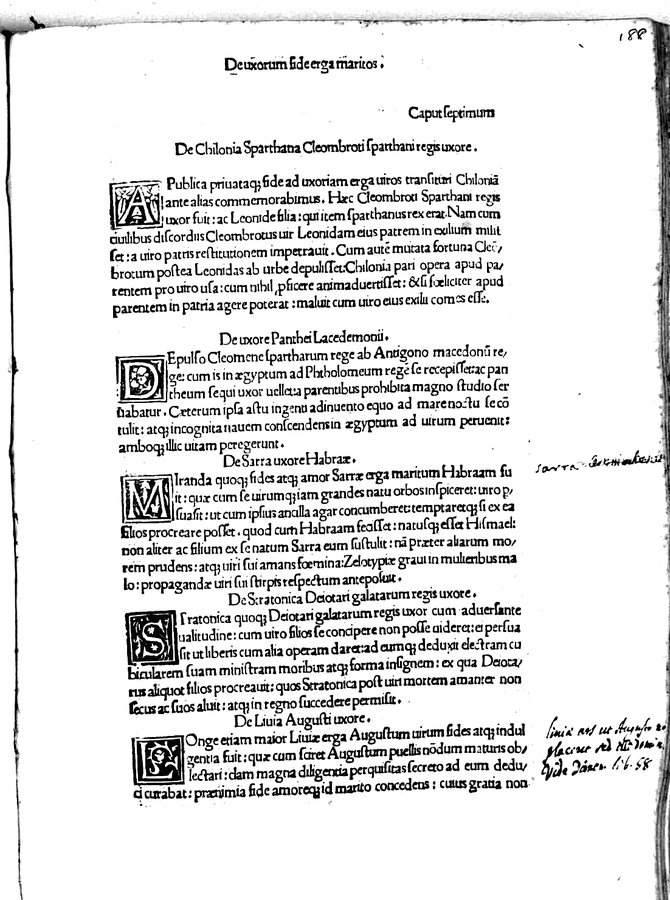 188
De uxorum fide erga maritos.
Caput septimum
De Chilonia Sparthana Cleombroti sparthani regis uxore.
A Publica priuataq; fide ad uxoriam erga uiros transituri Chiloniā
ante alias commemorabimus. Hæc Cleombroti Sparthani regis
uxor fuit: ac Leonidę filia: qui item sparthanus rex erat. Nam cum
ciuilibus discordiis Cleombrotus uir Leonidam eius patrem in exilium misis
set: a uiro patris restitutionem impetrauit. Cum autē mutata fortuna Cleō/
brotum postea Leonidas ab urbe depulisset: Chilonia pari opera apud pa/
rentem pro uiro usa: cum nihil ꝓficere animaduertisset: & si fœliciter apud
parentem in patria agere poterat: maluit cum uiro eius exilii comes esse.
De uxore Panthei Lacedemonii.
DEpulso Cleomene spartharum rege ab Antigono macedonū re/
ge: cum is in ægyptum ad Phtholomeum regē se recepisset: ac pan
theum sequi uxor uellet: a parentibus prohibita magno studio ser
uabatur. Cæterum ipsa astu ingenti adinuento equo ad mare noctu se cō
tulit: atq; incognita nauem conscendens in ægyptum ad uirum peruenit:
amboq; illic uitam peregerunt.
De Sarra uxore Habraæ.
MIranda quoq; fides atq; amor Sarræ erga maritum Habraam fu
it: quæ cum se uirumq; iam grandes natu orbos inspiceret: uiro ꝑ/
suasit: ut cum ipsius ancilla agar concumberet: temptaretq; si ex ea
filios procreare posset. quod cum Habraam fecisset: natusq; esset Hismael:
non aliter ac filium ex se natum Sarra eum sustulit: nā præter aliarum mo/
rem prudens: atq; uiri sui amans fœmina: Zelotypiæ graui in mulieribus ma
lo: propagandæ uiri sui stirpis respectum anteposuit.
Sarra
De Stratonica Deiotari galatarum regis uxore.
STratonica quoq; Deiotari galatarum regis uxor cum aduersante
ualitudine: cum uiro filios se concipere non posse uideret: ei persua
sit ut liberis cum alia operam daret: ad eumq; deduxit electram cu
bicularem suam ministram moribus atq; forma insignem: ex qua Deiota/
rus aliquot filios procreauit: quos Stratonica post uiri mortem amanter non
secus ac suos aluit: atq; in regno succedere permisit.
De Liuia Augusti uxore.
LOnge etiam maior Liuiæ erga Augustum uirum fides atq; indul
gentia fuit: quæ cum sciret Augustum puellis nōdum maturis ob/
lectari: clam magna diligentia perquisitas secreto ad eum dedu/
ci curabat: prænimia fide amoreq; id marito concedens: cuius gratia non
liuia ut Augusto
placeret
lib. 58